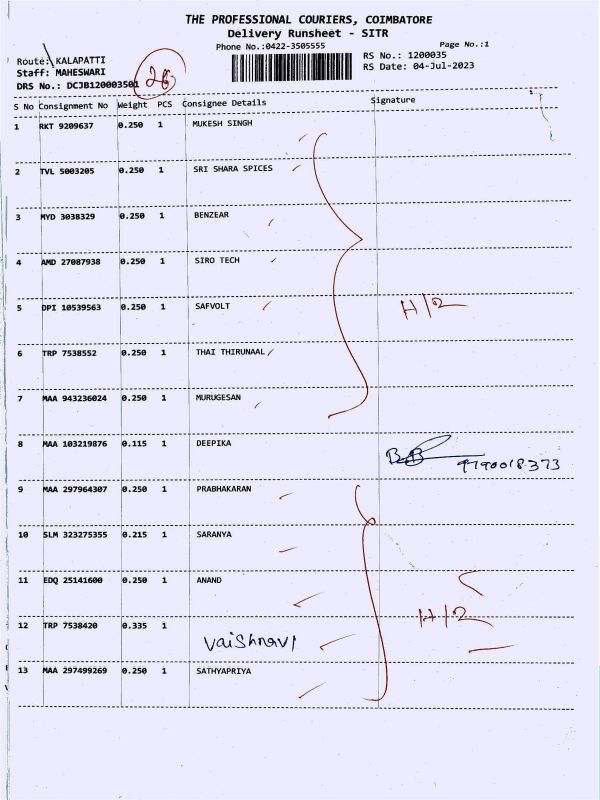 THE PROFESSIONAL COURIERS, COIMBATORE
Delivery Runsheet - SITR
Phone No.:0422-3505555 Page No.:1
Route: KALAPATTI RS No.: 1200035
Staff: MAHESWARI RS Date: 04-Jul-2023
DRS No.: DCJB120003501 26
S No Consignment No Weight PCS Consignee Details Signature
1 RKT 9209637 0.250 1 MUKESH SINGH
2 TVL 5003205 0.250 1 SRI SHARA SPICES
3 MYD 3038329 0.250 1 BENZEAR
4 AMD 27087938 0.250 1 SIRO TECH
5 DPI 10539563 0.250 1 SAFVOLT H/2
6 TRP 7538552 0.250 1 THAI THIRUNAAL
7 MAA 943236024 0.250 1 MURUGESAN
8 MAA 103219876 0.115 1 DEEPIKA 9790018373
9 MAA 297964307 0.250 1 PRABHAKARAN
10 SLM 323275355 0.215 1 SARANYA
11 EDQ 25141600 0.250 1 ANAND
12 TRP 7538420 0.335 1 Vaishnavi H/2
13 MAA 297499269 0.250 1 SATHYAPRIYA